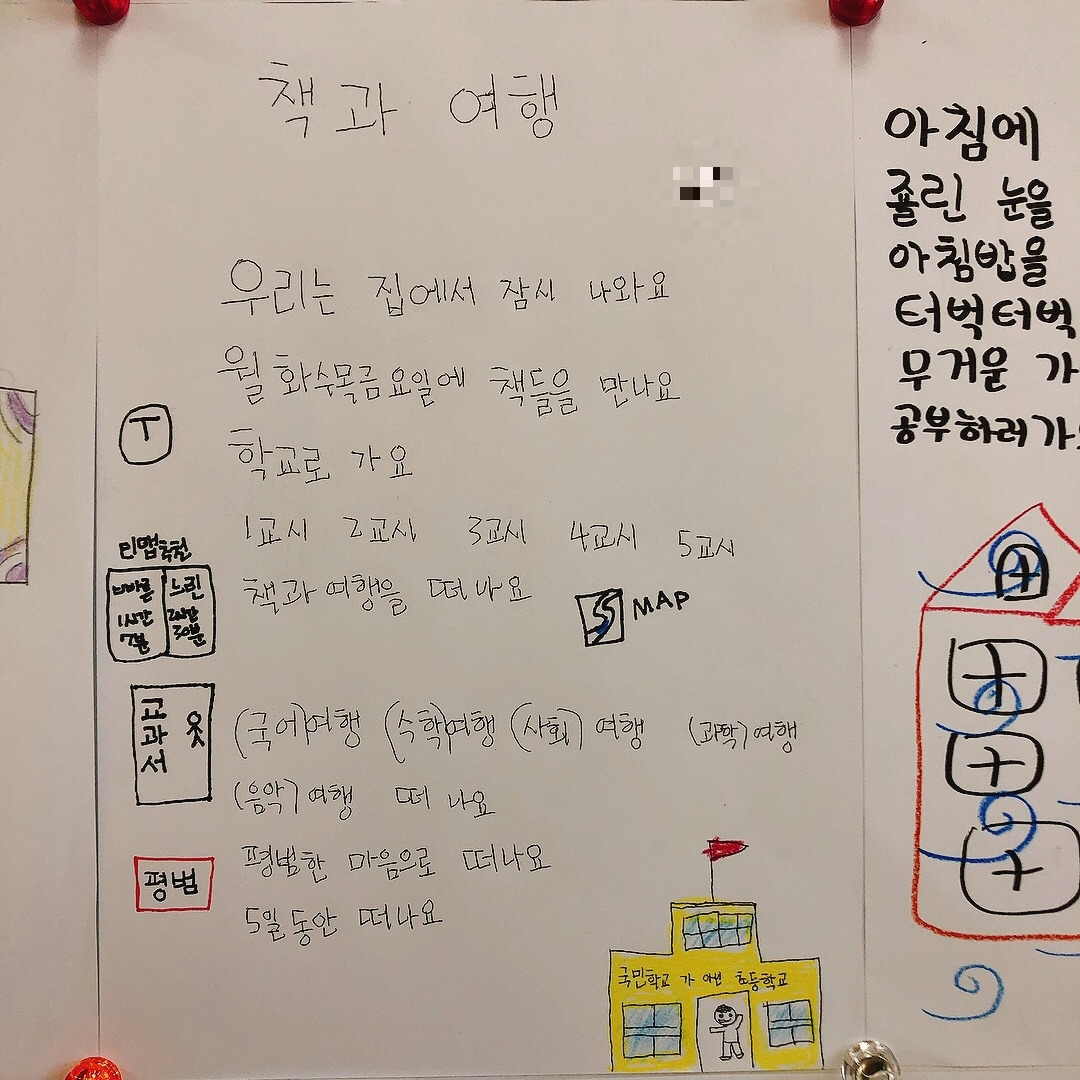 책과 여행
우리는 집에서 잠시 나와요
월화수목금요일에 책들을 만나요
T
학교로 가요
1교시 2교시 3교시 4교시 5교시
책과 여행을 떠나요
MAP
빠른 느린
1시간 2시간
7분 30분
교과서
(국어)여행 (수학)여행 (사회) 여행 (과학)여행
(음악)여행 떠나요
평범한 마음으로 떠나요
평범
5일동안 떠나요
국민학교 가 아닌 초등학교
아침에
졸린 눈을
아침밥을
터벅터벅
무거운 가
공부하러가